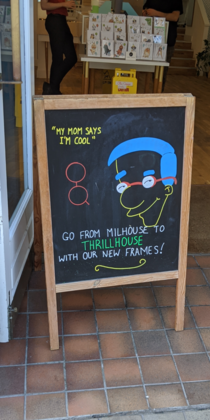 "MY MOM SAYS
I'M COOL"
GO FROM MILHOUSE TO
THRILLHOUSE
WITH OUR NEW FRAMES!